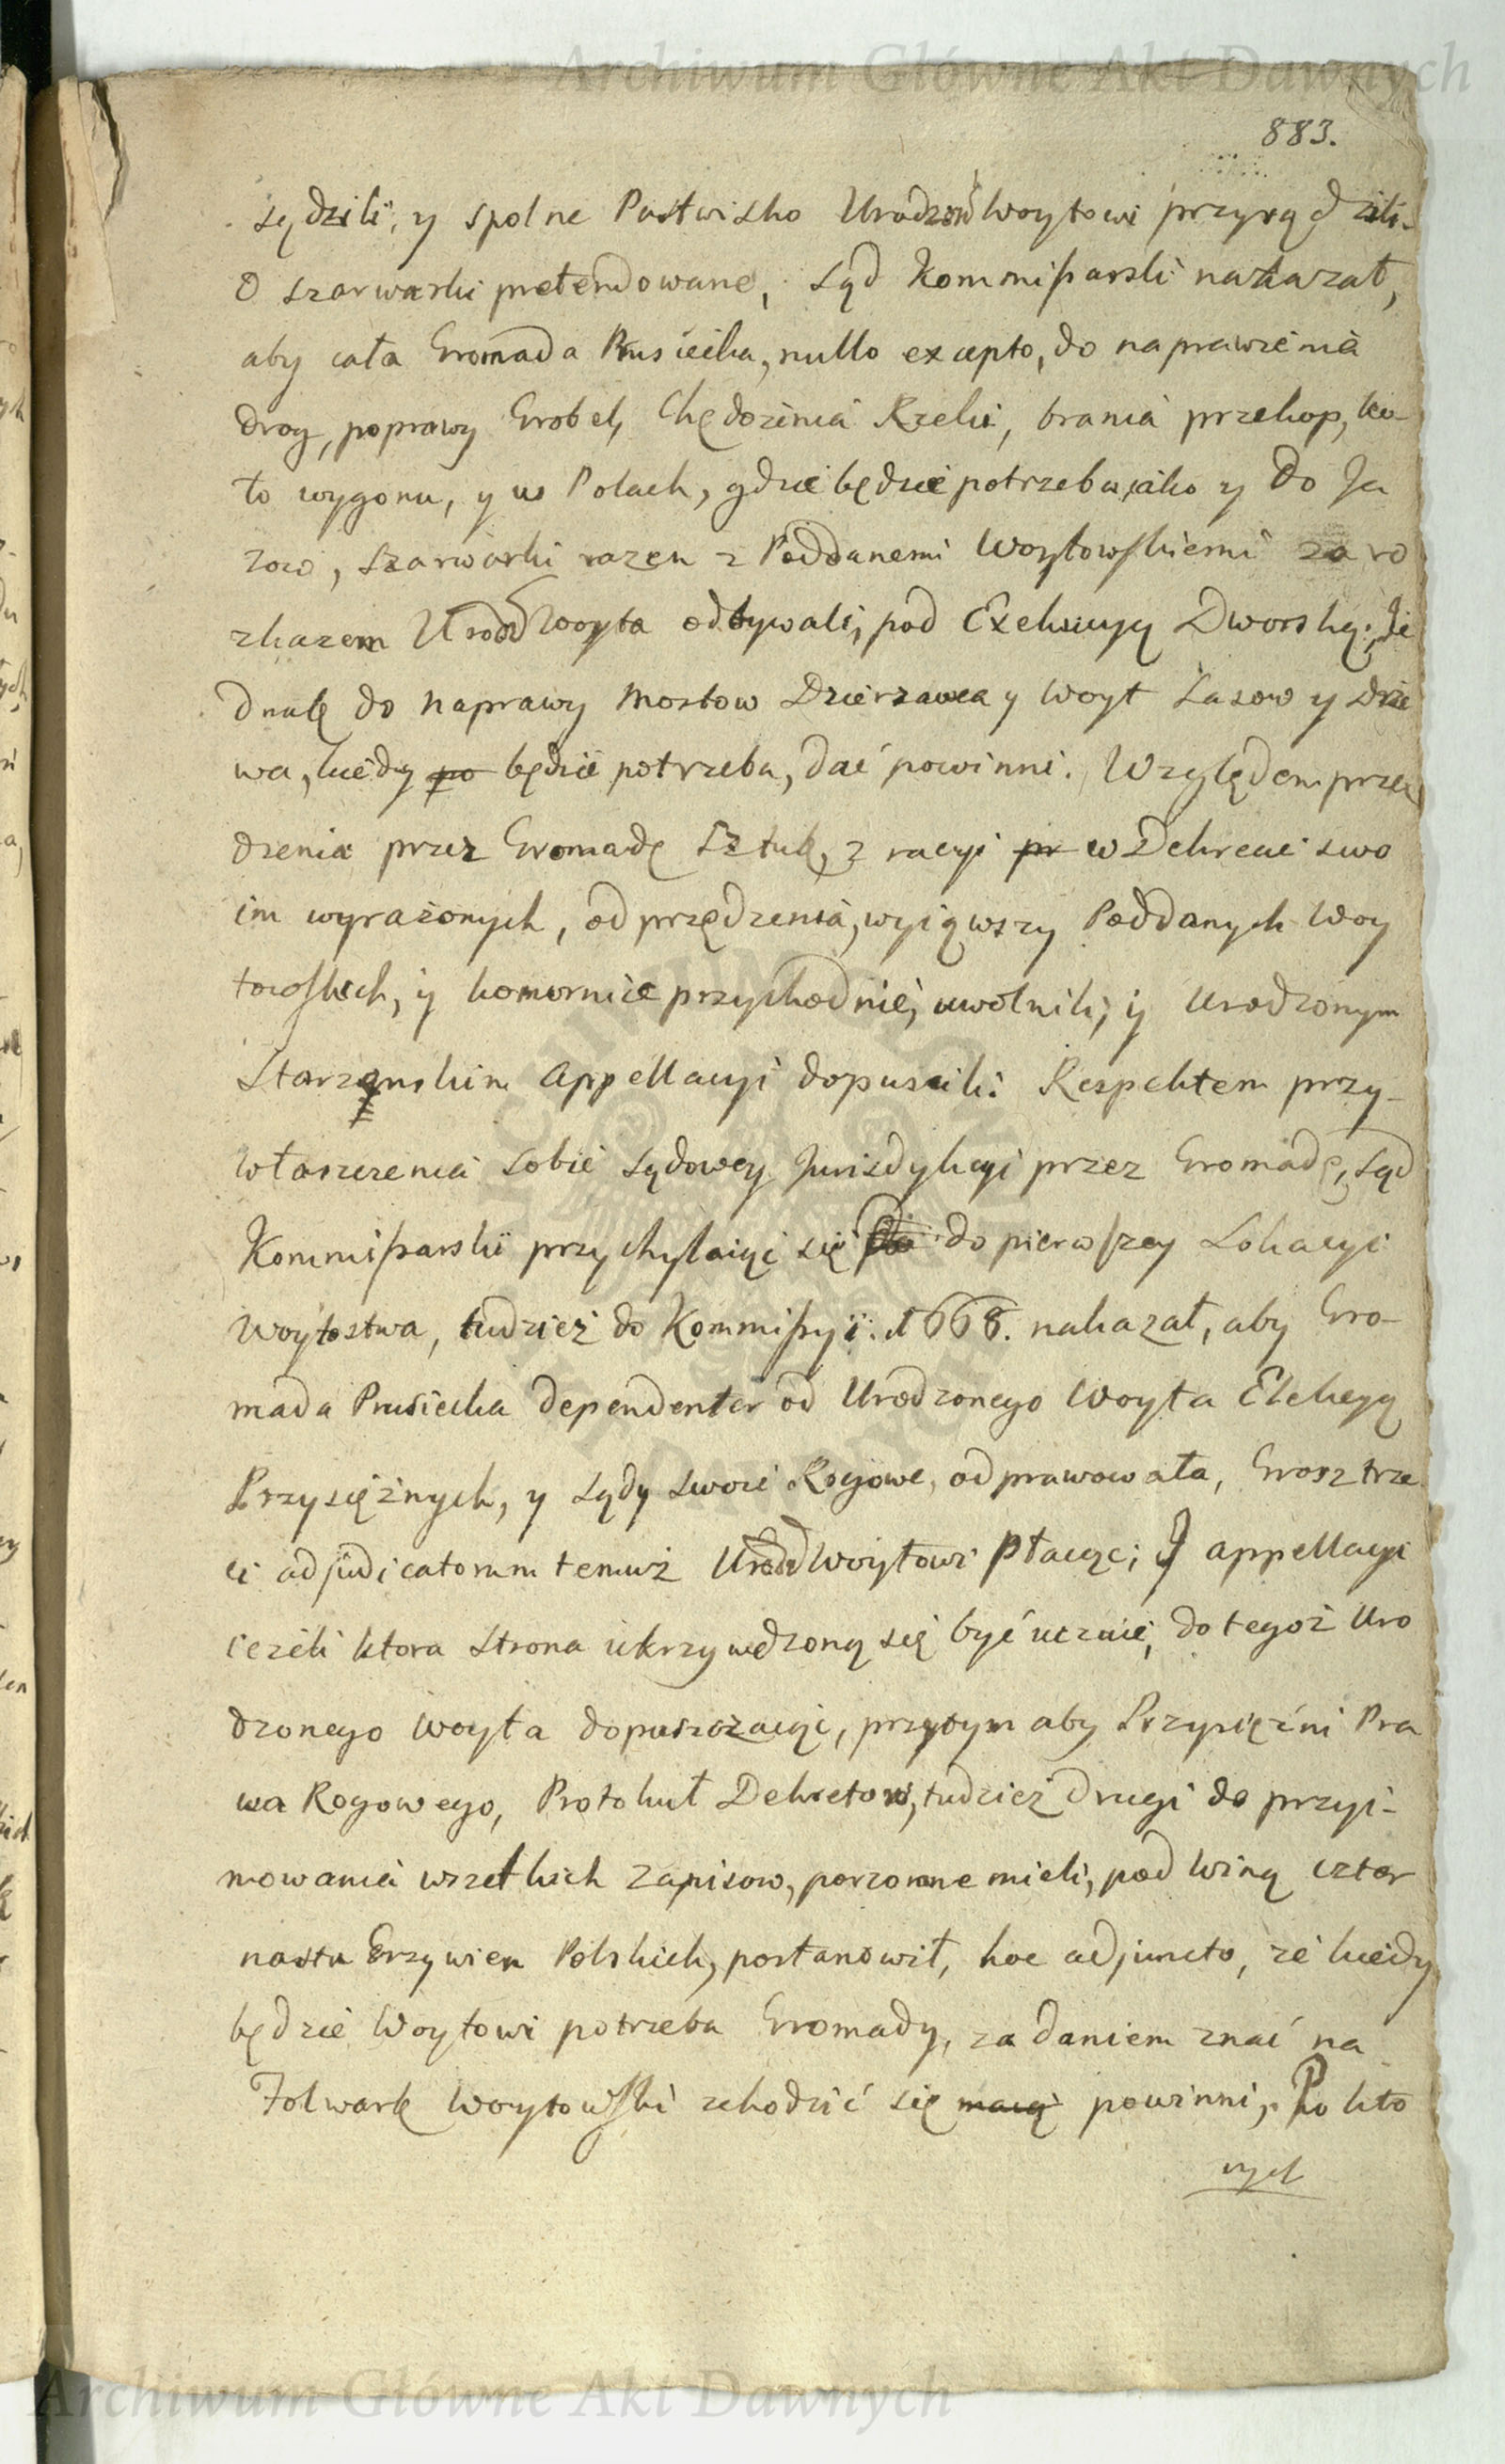 Archiwum Główne Akt Dawnych
883.
sędzili, y spolne Pastwisko Urodzon Woytowi przysądzili.
O szarwarki pretendowane, sąd Kommissarski nakazał,
aby cała Gromada Prusiecka, nullo excepto, do naprawienia
drog, poprawy Grobel, Chędożenia Rzeki, brania przekop, ko-
ło wygonu, y w Polach, gdzie będzie potrzeba, iako y do Ja
zow, szarwarki razem z Poddanemi Woytowskiemi za ro
zkazem Urodz Woyta odbywali, pod Exekucyą Dworską. Je
dnak do naprawy Mostow Dzierzawca y Woyt Lasow y Drze
wa, kiedy po będzie potrzeba, dać powinni. Względem przę
dzenia przez Gromadę Sztuk, z racyi pr w Dekrecie swo
im wyrażonych, od przędzenia, wyiąwszy Poddanych Woy
towskich, y komornice przychodnie, uwolnili, y Urodzonym
Starzynskim Appellacyi dopuscili. Respektem przy-
własczenia sobie sądowey Jurisdykcyi przez Gromadę, sąd
Kommissarski przychylaiąc się do pierwszey Lokacyi
Woytostwa, tudziez do Kommissyi 1668. nakazał, aby Gro-
mada Prusiecka dependenter od Urodzonego Woyta Elekcyą
Przysiężnych, y sądy swoie Rogowe, odprawowała, Grosz trze
ci adjudicatorum temuż Urodz Woytowi płacąc; y appellacyi
ieżeli ktora strona ukrzywdzoną się być uczuie, do tegoż Uro
dzonego Woyta dopuszczaiąc, przytym aby Przysiężni Pra
wa Rogowego, Protokuł Dekretow, tudzież drugi do przyi-
mowania wszelkich zapisow, porzonne mieli, pod winą czter
nastu Grzywien Polskich, postanowił, hoc adjuncto, że kiedy
będzie Woytowi potrzeba Gromady, za daniem znać na
Folwark Woytowski schodzić się maią powinni, Po kto
rych
Archiwum Główne Akt Dawnych